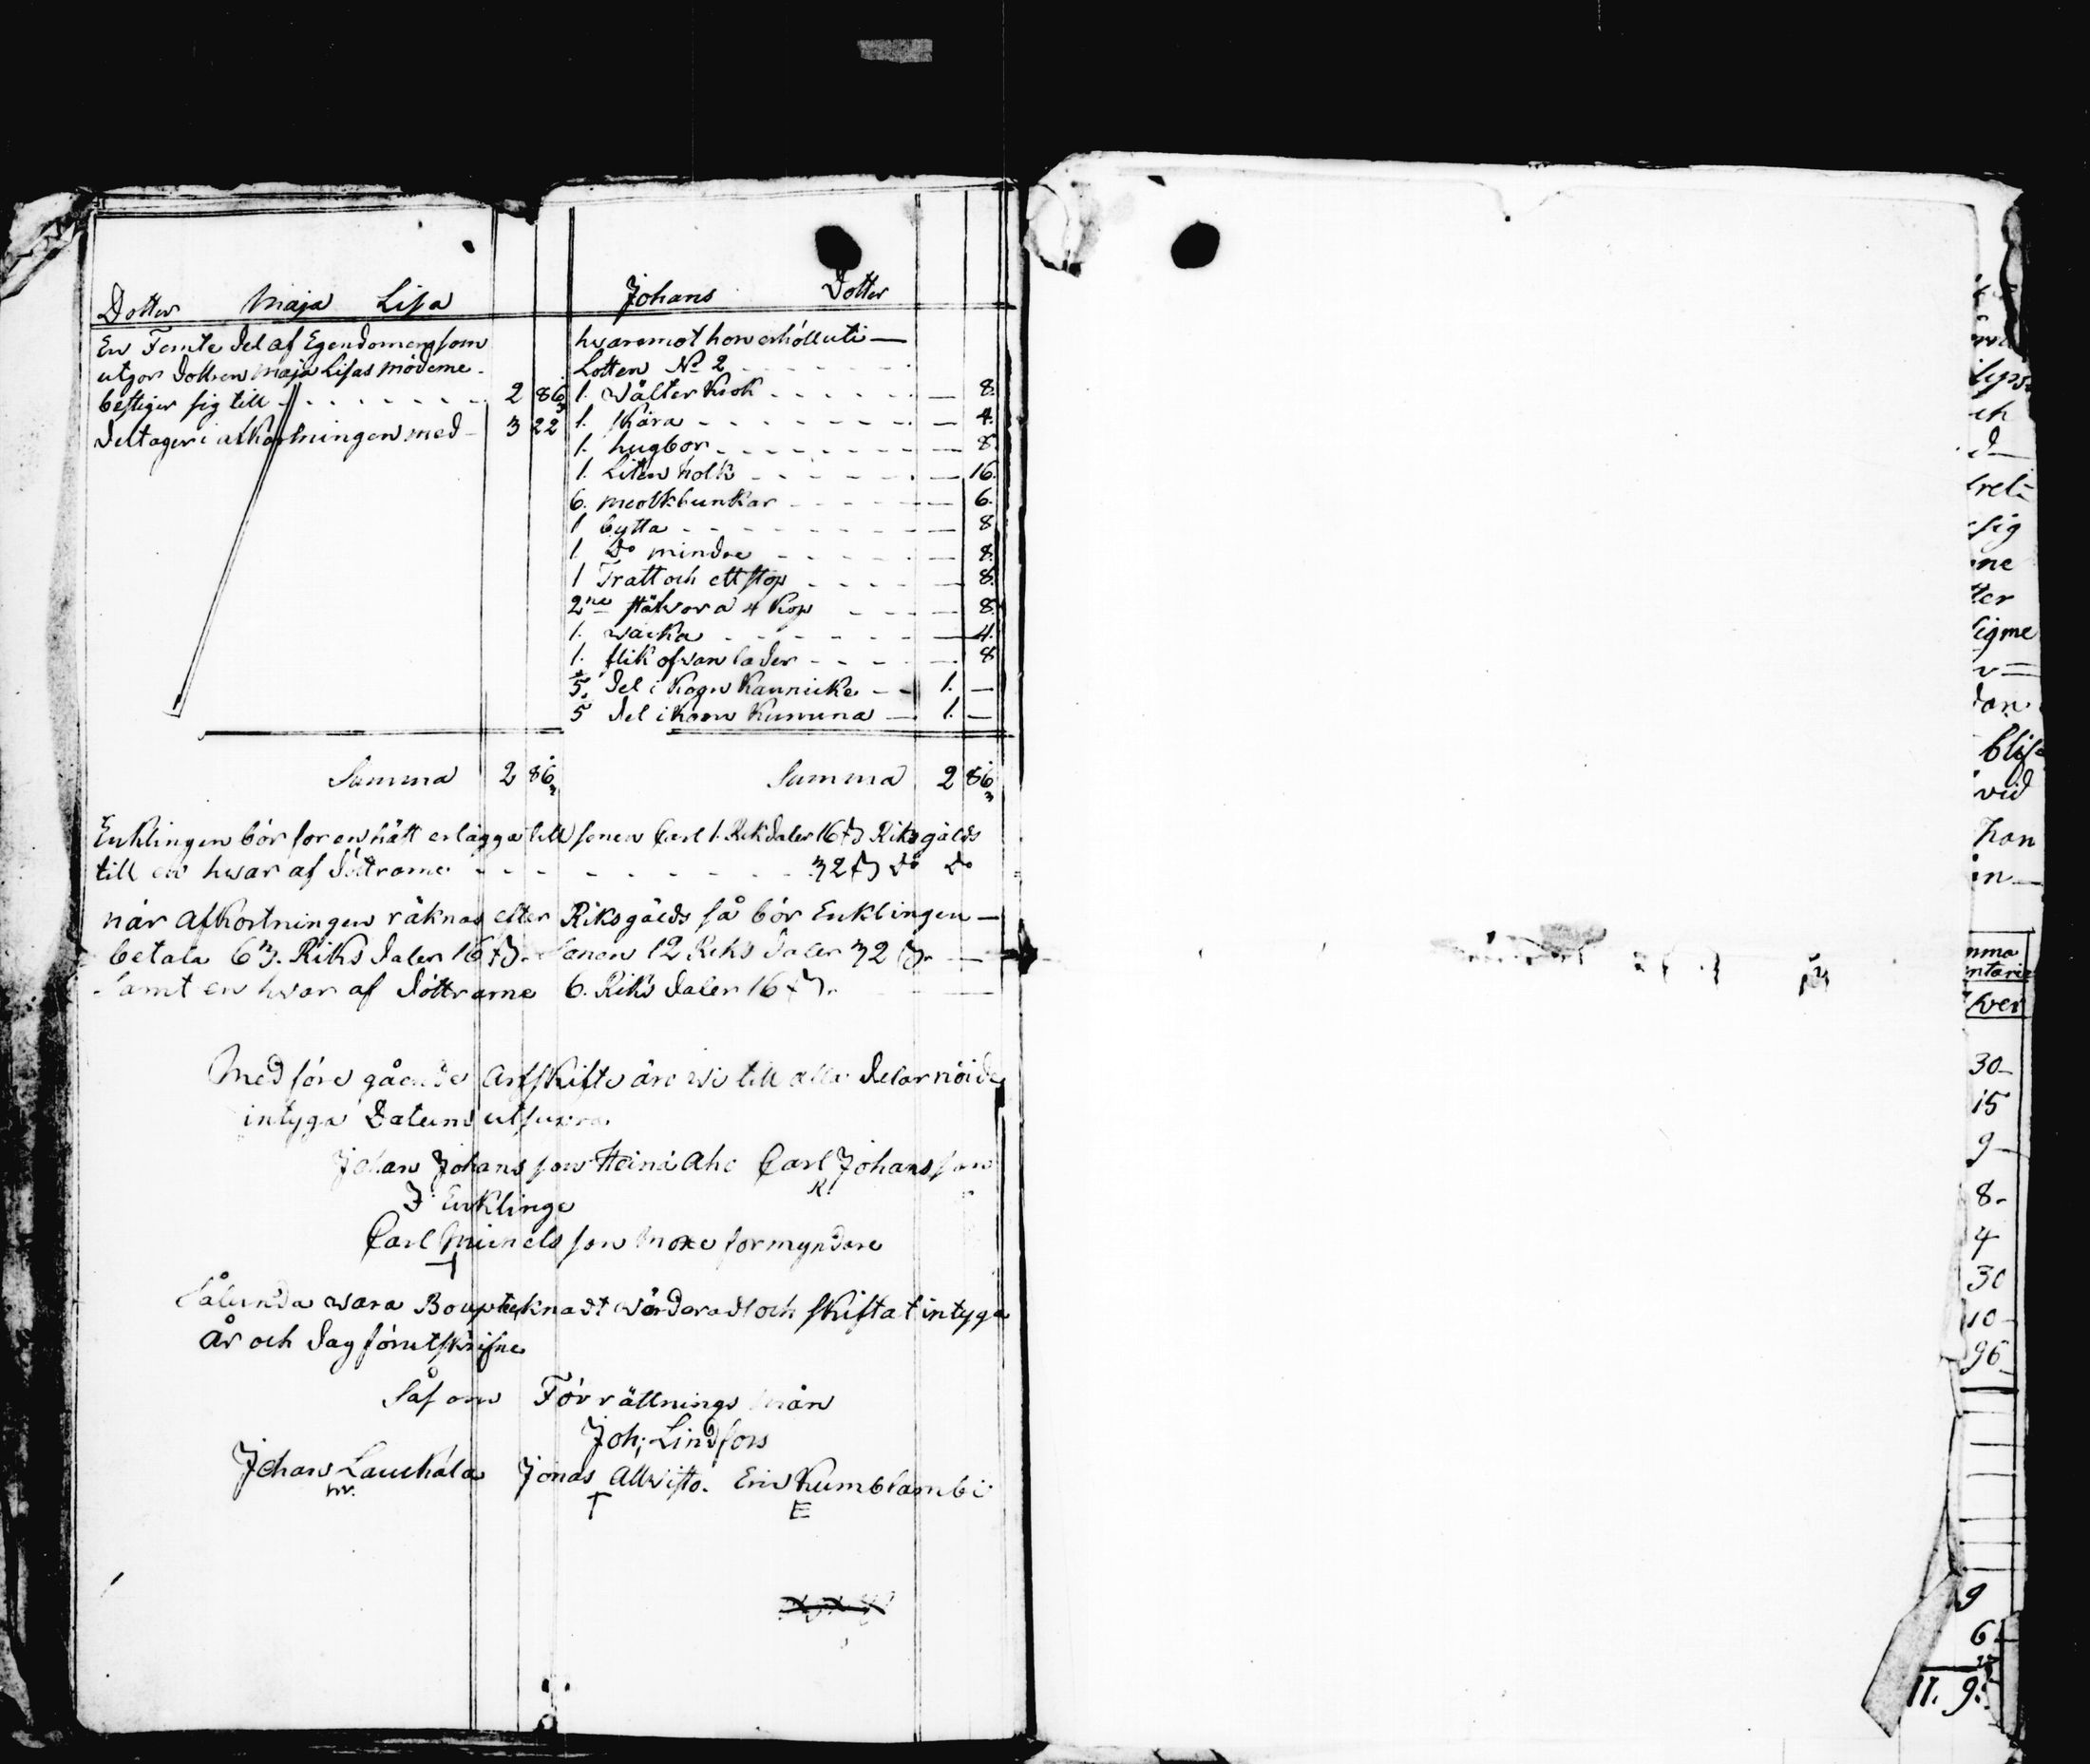 Dotter Maja Lisa
En Femte del af Egendomen som
utgör Dottren Maja Lisas möderne
bestiger sig till 2 86
deltager i afkortningen med 3 22
Summa 2 86
Johans Dotter
hvaremot hon erhöll uti
Lotten No 2
1. wälter krok 8.
1. skära 4.
1. hugbor 8.
1. Liten holk 16.
6. meolkbunkar 6.
1 bytta 8
1. Do mindre 8.
1 Tratt och ett stop 8.
2ne stäfvor a 4 kop 8.
1. wacka 4.
1. flik ofvan läder 8
5 del i kogn Kaunicke 1.
5 del i koon Kununa 1.
Summa 2 86
Enklingen bör för en hätt erlägga till sonen Carl 1. Rikdaler 16 ß Riksgälds
till en hvar af döttrarne 32 ß Do Do
när afkortningen räknas efter Riksgälds så bör Enklingen
betala 63. Riks daler 16 ß. Sonen 12 Riks daler 32 ß.
Samt en hvar af döttrarne 6. Riks daler 16 ß.
Med före gående Arfskifte äro wi till alla delar nöide
intyga Datum ut supra.
Johan Johansson Heiniaho Carl Johansson
Enklinge
Carl son formyndare
Sålunda wara Boupteknadt wärderadt och skiftat intyga
år och dag förutskrifne
Såsom Förrättnings män
Joh; Lindfors
Johan Laukala Jonas Allvisto. Eric Kumblambi
T E
sig
ne
ter
vid
han
in
nma
ntarie
ver
30
15
9
8
4
30
10
96
9
6
11. 9.